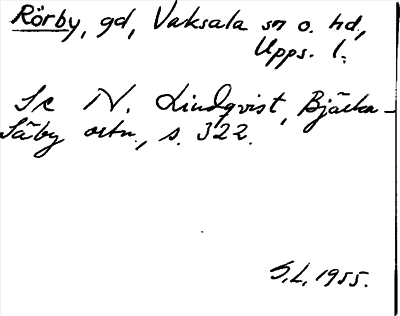 Rörby, gd, Vaksala sn o. hd,
Upps. l.
Se N. Lindqvist, Bjärka-
Säby ortn., s. 322.
S.L. 1955.